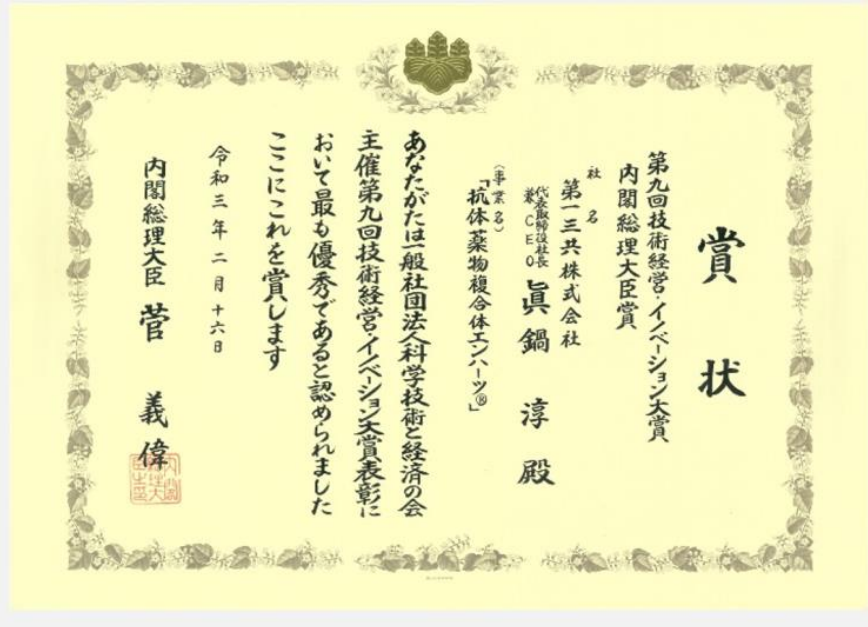 賞状
第九回技術経営・イノベーション大賞
内閣総理大臣賞
社名
第一三共株式会社
代表取締役社長
兼CEO
眞鍋淳殿
(事業名)
「抗体薬物複合体エンハーツ®」
あなたがたは一般社団法人科学技術と経済の会
主催第九回技術経営・イノベーション大賞表彰に
おいて最も優秀であると認められました
ここにこれを賞します
令和三年二月十六日
内閣総理大臣 菅義偉